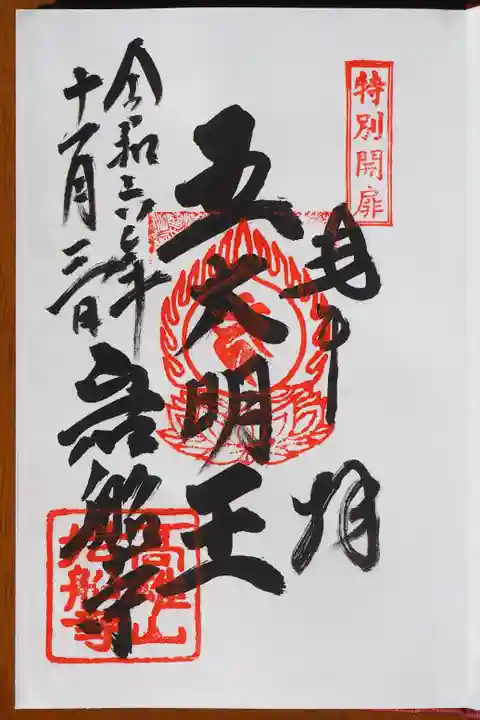 特別開扉
奉拝
五大明王
令和六年
十一月三日
岩船寺
高雄山
岩船寺